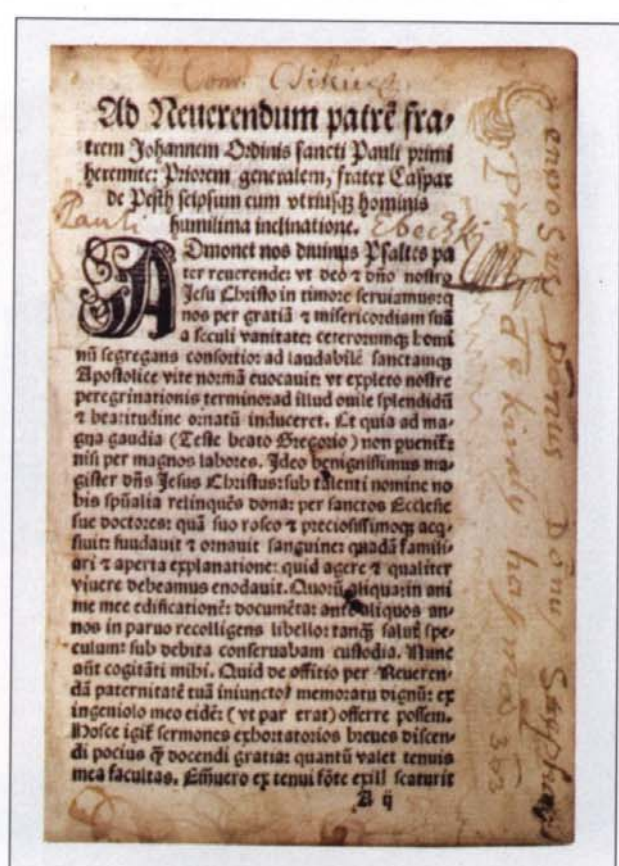 Conv. Csikiens.
Ad Reuerendum patrē fra⸗
trem Johannem Ordinis sancti Pauli primi
heremite: Priorem generalem, frater Caspar
de Pesth seipsum cum vtriusqȝ hominis
humilima inclinatione.
Pauli
ADmonet nos diuinus Psaltes pa
ter reuerende: vt deo ⁊ dño nostro
Jesu Christo in timore seruiamus:q
nos per gratiā ⁊ misericordiam suā
a seculi vanitate: ceterorumqȝ homi
nū segregans consortio: ad laudabilē sanctamqȝ
Apostolice vite normā euocauit: vt expleto nostre
peregrinationis termino:ad illud ouile splendidū
⁊ beatitudine ornatū induceret. Et quia ad ma⸗
gna gaudia (Teste beato Gregorio) non puenit̄:
nisi per magnos labores. Ideo benignissimus ma⸗
gister dñs Jesus Christus:sub talenti nomine no
bis spūalia relinquēs dona: per sanctos Ecclesie
sue doctores: quā suo roseo ⁊ preciosissimoqȝ acq⸗
siuit: fundauit ⁊ ornauit sanguine: quadā famili⸗
ari ⁊ aperta explanatione: quid agere ⁊ qualiter
viuere debeamus enodauit. Quorū aliqua:in ani
me mee edificationē: documēta: ante aliquos an⸗
nos in paruo recolligens libello: tanqȝ salut̄ spe⸗
culum: sub debita conseruabam custodia. Nunc
aūt cogitāti mihi. Quid de offitio per Reueren⸗
dā paternitatē tuā iniuncto/ memoratu dignū: ex
ingeniolo meo eidē: (vt par erat) offerre possem.
Hosce igit̄ sermones exhortatorios breues discen⸗
di pocius qȝ docendi gratia: quantū valet tenuis
mea facultas. Em̄uero ex tenui fōte exill scaturit
A ij